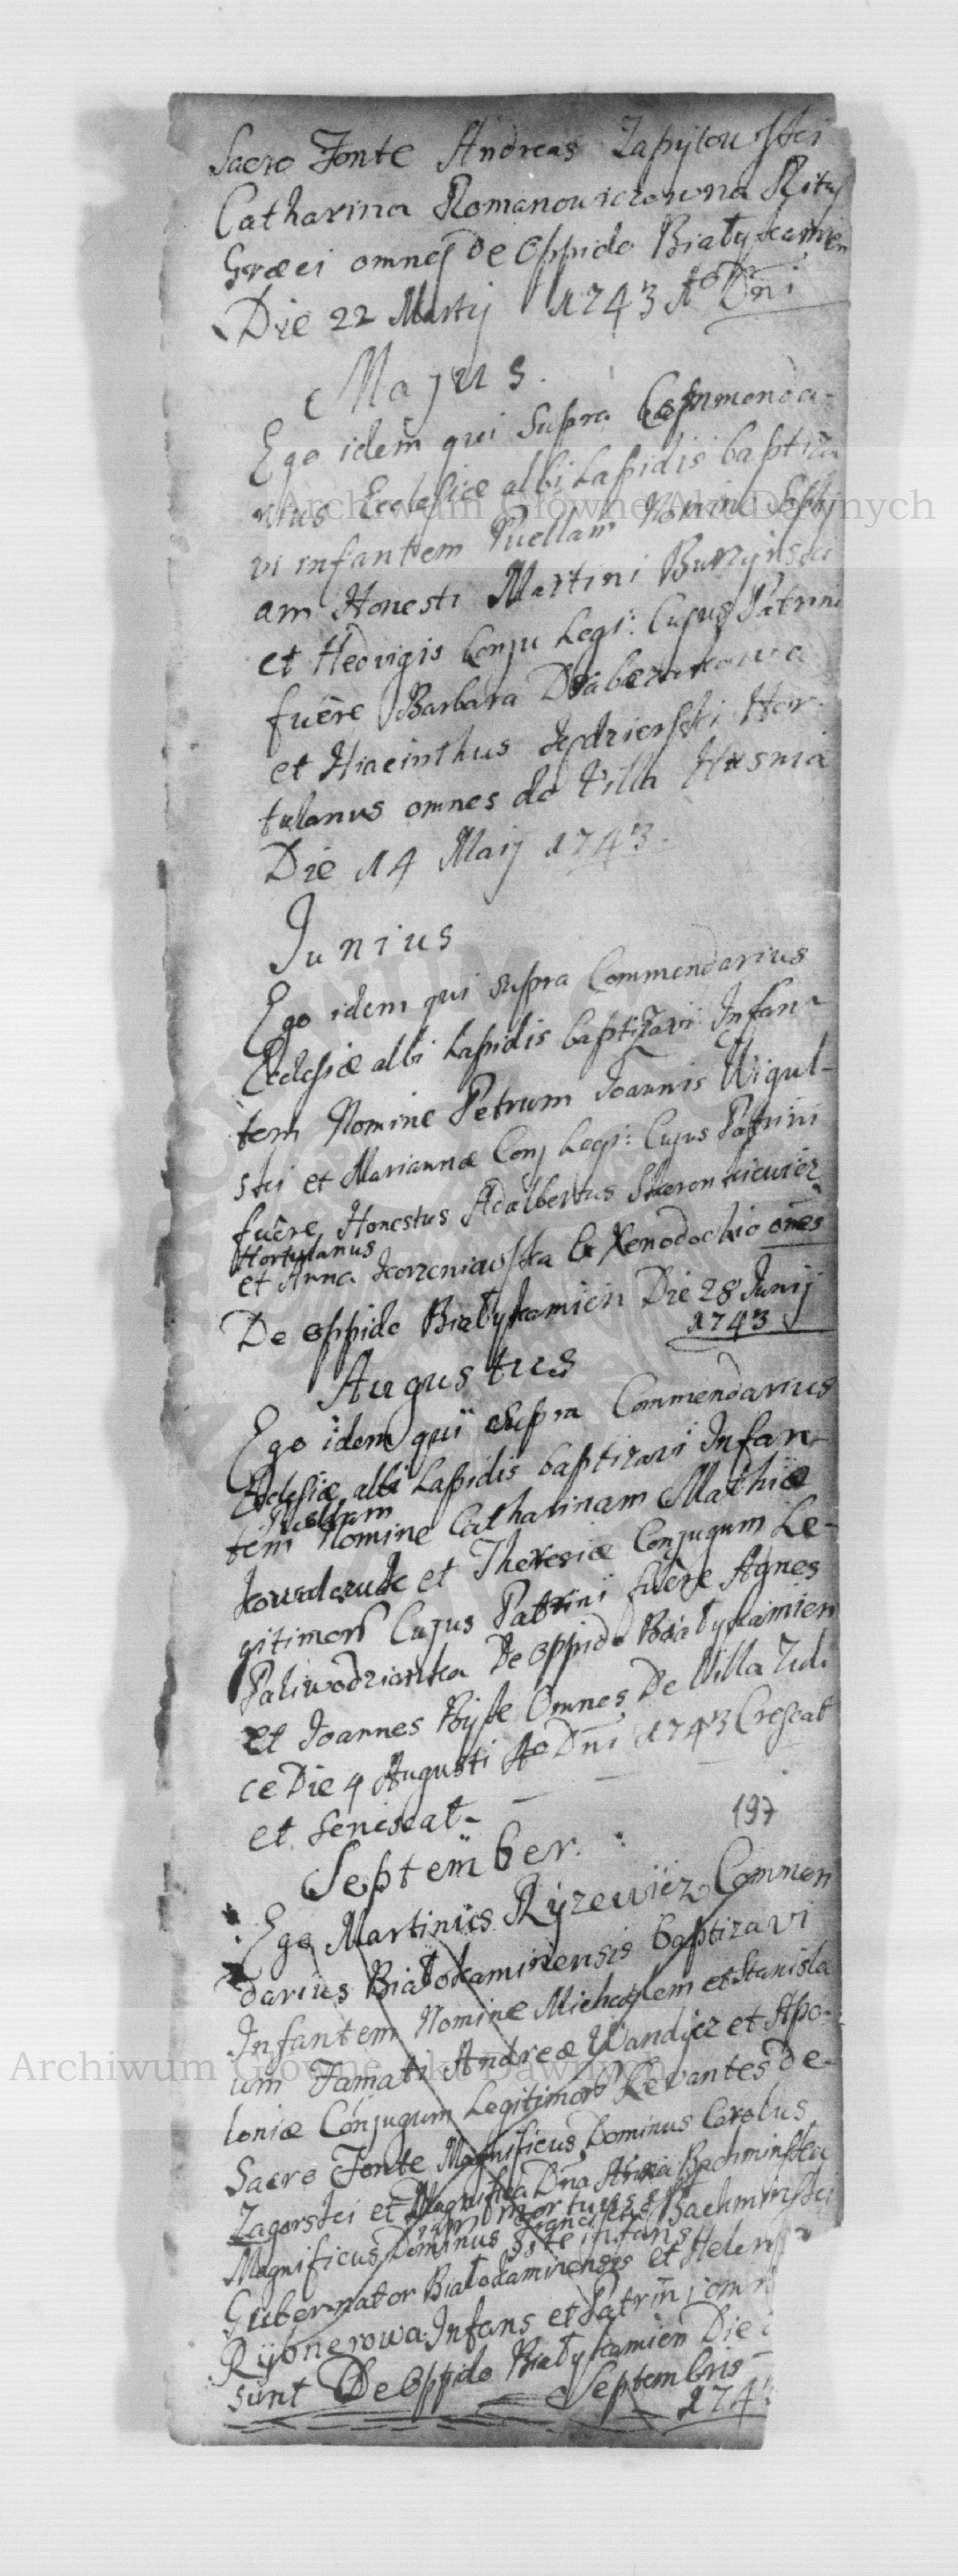 Sacro Fonte Andreas Zapytowski
Catharina Romanowiczowna Ritus
Græci omnes De Oppido Białykamien
Die 22 Martij 1743 Aº Dni
Majus.
Ego idem qui Supra Commenda-
rius Ecclesiæ albi Lapidis baptiza
vi infantem Puellam Nomine Sophi
am Honesti Martini Burzynski
et Hedvigis Conju Legi: Cujus Patrini
fuêre Barbara
et Hiacinthus Hor-
tulanus omnes de Villa Usnia
Die 14 Maij 1743.
Junius
Ego idem qui supra Commendarius
Ecclesiæ albi Lapidis baptizavi Infan-
tem Nomine Petrum Joannis Wigul-
ski et Mariannæ Conj Legi: Cujus Patrini
fuêre Honestus Adalbertus
Hortulanus
et Anna Korzeniowska Ex Xenodochio omes
De oppido Białykamien Die 28 Junij
1743
Augustus
Ego idem qui Supra Commendarius
Ecclesiæ albi Lapidis baptizavi Infan-
Puellam
tem Nomine Catharinam Mathiæ
Kowalczuk et Theresiæ Conjugum Le-
gitimor Cujus Patrini fuêre Agnes
Paliwodzianka De oppido Białykamien
et Joannes Byk Omnes De Villa
ce Die 4 Augusti Aº Dni 1743 Crescat
et Seniscat-
197
September.
Ego Martinus Ryzewicz Commen
darius Białokaminensis baptizavi
Infantem Nomine Michaelem et Stanisla
um Famati Andreæ Wandycz et Apo-
loniæ Conjugum Legitimor Levantes de
Sacro Fonte Magnificus Dominus Carolus
Zagorski et Magnifica Dna Anna Bachminska
iam mortuus est
Magnificus Dominus Bachminski
iste infans
Gubernator Białokaminensis et Helena
Rybnerowa Infans et Patrini omn
sunt De Oppido Białykamien Die
Septembris
174
Archiwum Główne Akt Dawnych
Archiwum Główne Akt Dawnych